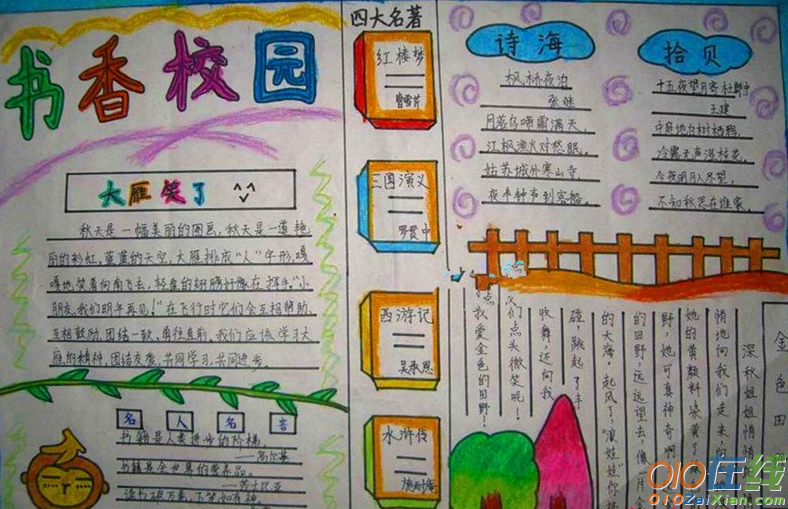 书香校园
大雁笑了
秋天是一幅美丽的图画，秋天是一道艳
丽的彩虹，蓝蓝的天空，大雁排成“人”字形，嘎
嘎地笑着向南飞去，轻盈的翅膀好像在挥手“小
朋友，我们明年再见！”在飞行时它们会互相帮助，
互相鼓励，团结一致，勇往直前，我们应该学习大
雁的精神，团结友爱，共同学习，共同进步。
名人名言
书籍是人类进步的阶梯。
——高尔基
书籍是全世界的营养品。
——莎士比亚
读书破万卷，下笔如有神
四大名著
红楼梦
曹雪芹
三国演义
罗贯中
西游记
吴承恩
水浒传
施耐庵
诗海
枫桥夜泊
张继
月落乌啼霜满天，
江枫渔火对愁眠。
姑苏城外寒山寺，
夜半钟声到客船。
拾贝
十五夜望月寄杜郎中
王建
中庭地白树栖鸦，
冷露无声湿桂花。
今夜明月人尽望，
不知秋思在谁家。
金色田
深秋姐姐悄悄
情地向我们走来，向
她的黄颜料装黄了
野，她可真神奇啊
的田野，远远望去，像一片金
的大海，起风了，“浪娃娃”你
碰，跳起了丰
收舞，还向我
们点头微笑呢！
我爱金色的田野！
010在线
010ZaiXian.com